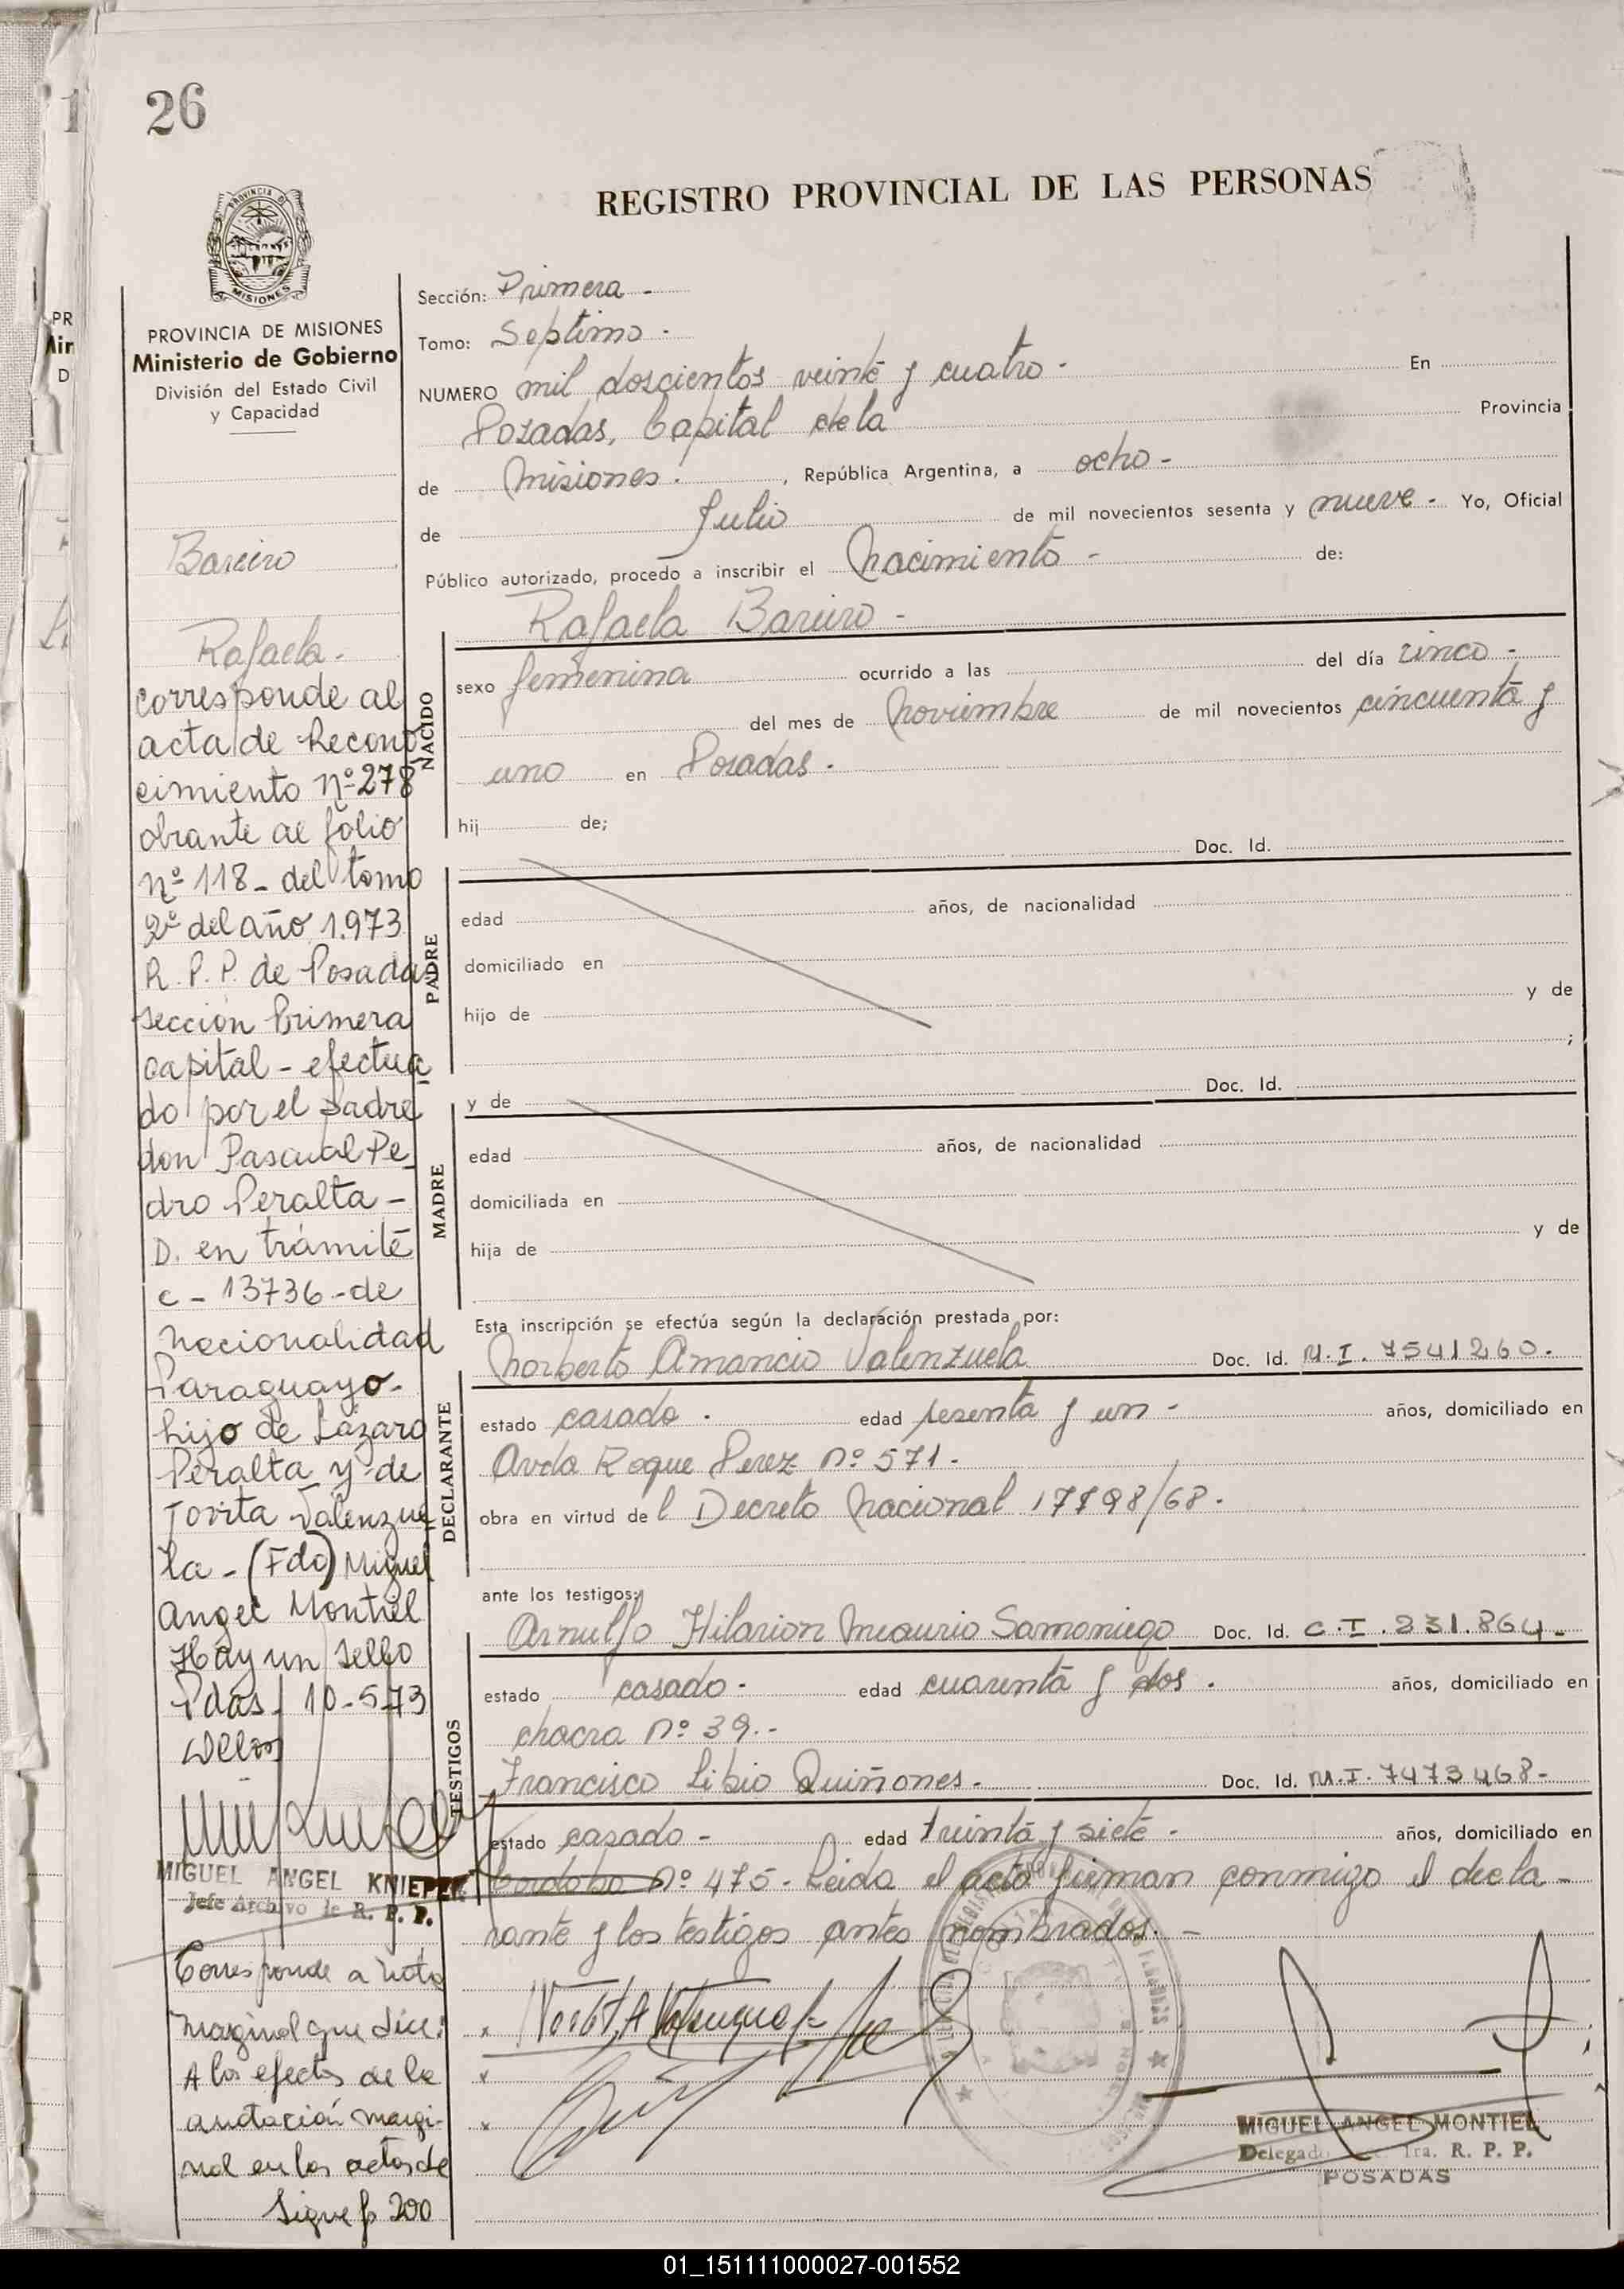 26
REGISTRO PROVINCIAL DE LAS PERSONAS
PROVINCIA DE MISIONES
Ministerio de Gobierno
División del Estado Civil
y Capacidad
Bareiro
Rafaela.
corresponde al
acta de Recono
cimiento Nº 278
obrante al folio
Nº 118 - del tomo
2º del año 1.973
R. P. P. de Posadas
Sección Primera
capital - efectua
do por el padre
don Pascual Pe
dro Peralta -
D. en trámite
c - 13736 - de
nacionalidad
Paraguayo.
hijo de Lázaro
Peralta y de
Tovita Valenzue
la - (Fdo) Miguel
Angel Montiel
Hay un sello
Pdas. 10-5-73
MIGUEL ANGEL KNIEPER
Jefe Archivo de R. P. P.
Corresponde a nota
marginal que dice:
A los efectos de la
anotación margi-
nal en las actas de
Sigue f 200
Sección: Primera -
Tomo: Septimo -
NUMERO mil doscientos veinte y cuatro - En
Posadas, Capital de la Provincia
de Misiones. , República Argentina, a ocho -
de Julio de mil novecientos sesenta y nueve - Yo, Oficial
Público autorizado, procedo a inscribir el Nacimiento - de:
Rafaela Bareiro -
NACIDO
sexo femenina ocurrido a las del día cinco -
del mes de Noviembre de mil novecientos cincuenta y
uno en Posadas.
hij de;
Doc. Id.
PADRE
edad años, de nacionalidad
domiciliado en
hijo de y de
;
y de Doc. Id.
MADRE
edad años, de nacionalidad
domiciliada en
hija de y de
Esta inscripción se efectúa según la declaración prestada por:
Norberto Amancio Valenzuela Doc. Id. M.I. 7541260.
DECLARANTE
estado casado. edad sesenta y un - años, domiciliado en
Avda Roque Perez Nº 571.
obra en virtud del Decreto Nacional
ante los testigos:
Arnulfo Hilarion Meaurio Samaniego Doc. Id. C.I. 231.864.
TESTIGOS
estado casado - edad cuarenta y dos. años, domiciliado en
chacra Nº 39.-
Francisco Libio Quiñones. Doc. Id. M.I. 7473468-
estado casado - edad treinta y siete - años, domiciliado en
Cordoba Nº 475 - Leida el acta firman conmigo el decla-
rante y los testigos antes nombrados. -
MIGUEL ANGEL MONTIEL
Delegado 1ra. R. P. P.
POSADAS
01_151111000027-001552